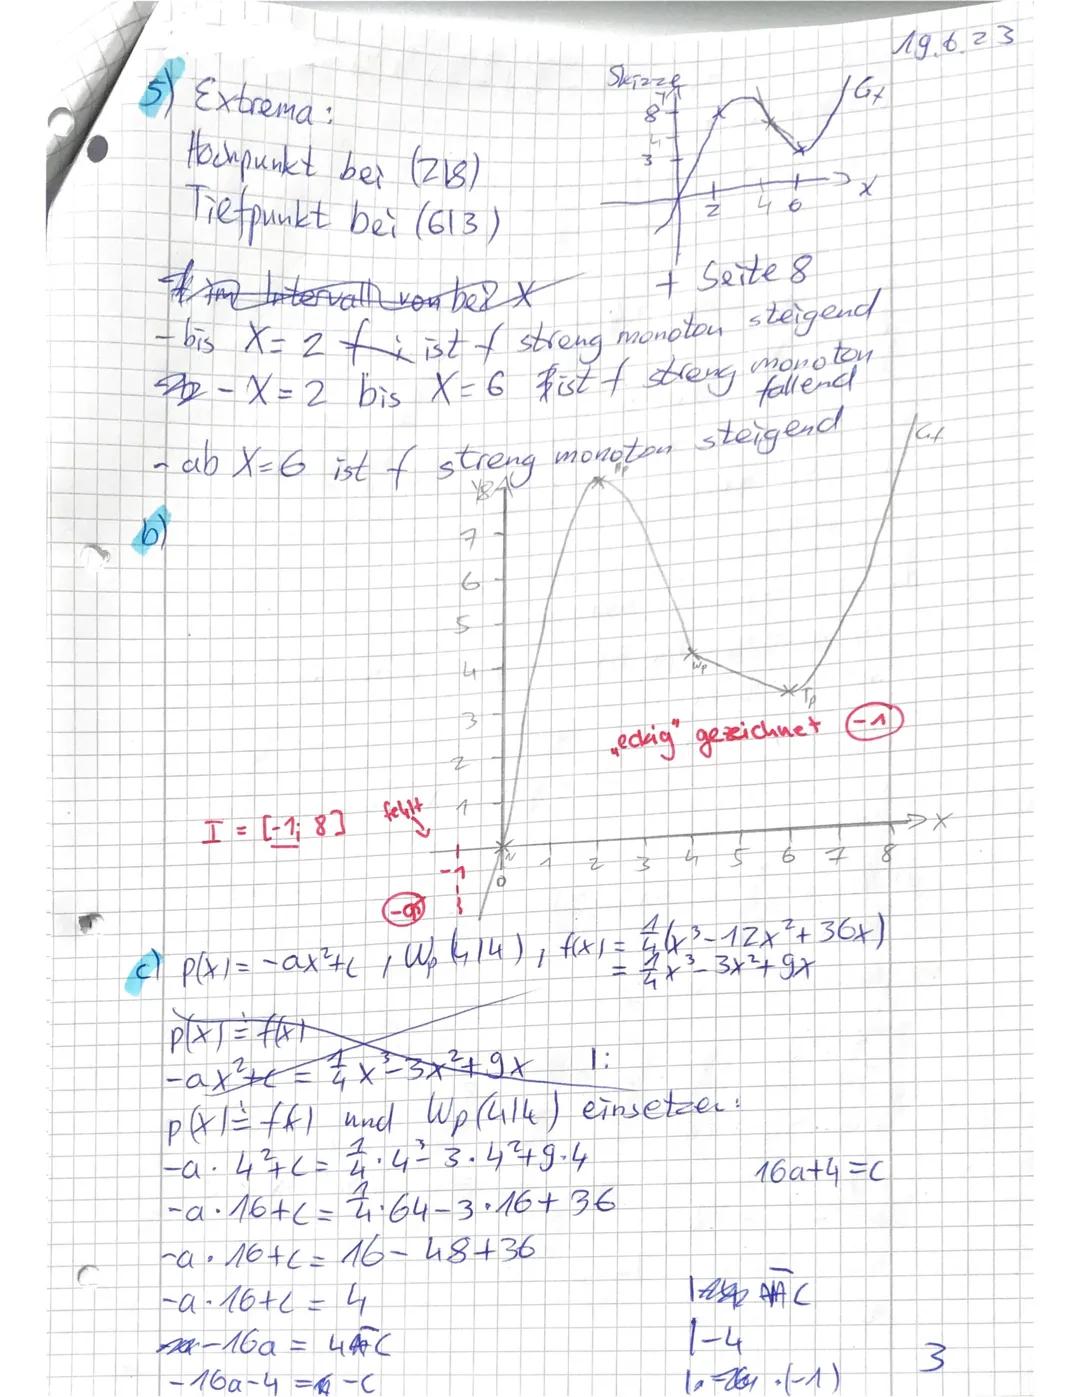 19.6.23
5) Extrema:
Hochpunkt bei (2|8)
Tiefpunkt bei (6|3)
Skizze
y
8
4
3
2 4 6
x
Gf
+ Seite 8
Im Intervall von bei x
- bis x = 2 ist f streng monoton steigend
- x = 2 bis x = 6 ist f streng monoton fallend
- ab x = 6 ist f streng monoton steigend
b)
y
8
Hp
Gf
7
6
5
4
Wp
Tp
3
„eckig" gezeichnet -1
2
1
I = [-1; 8]
fehlt
-1
N
0 1 2 3 4 5 6 7 8
x
c) p(x) = -ax²+c, Wp(4|4), f(x) = 1/4(x³-12x²+36x)
= 1/4x³-3x²+9x
p(x) = f(x)
-ax²+c = 1/4x³-3x²+9x |:
p(x) = f(x) und Wp(4|4) einsetzen:
-a·4²+c = 1/4·4³-3·4²+9·4
16a+4=c
-a·16+c = 1/4·64-3·16+36
-a·16+c = 16-48+36
-a·16+c = 4 |-c
-16a = 4-c |-4
-16a-4 = -c |·(-1)
3